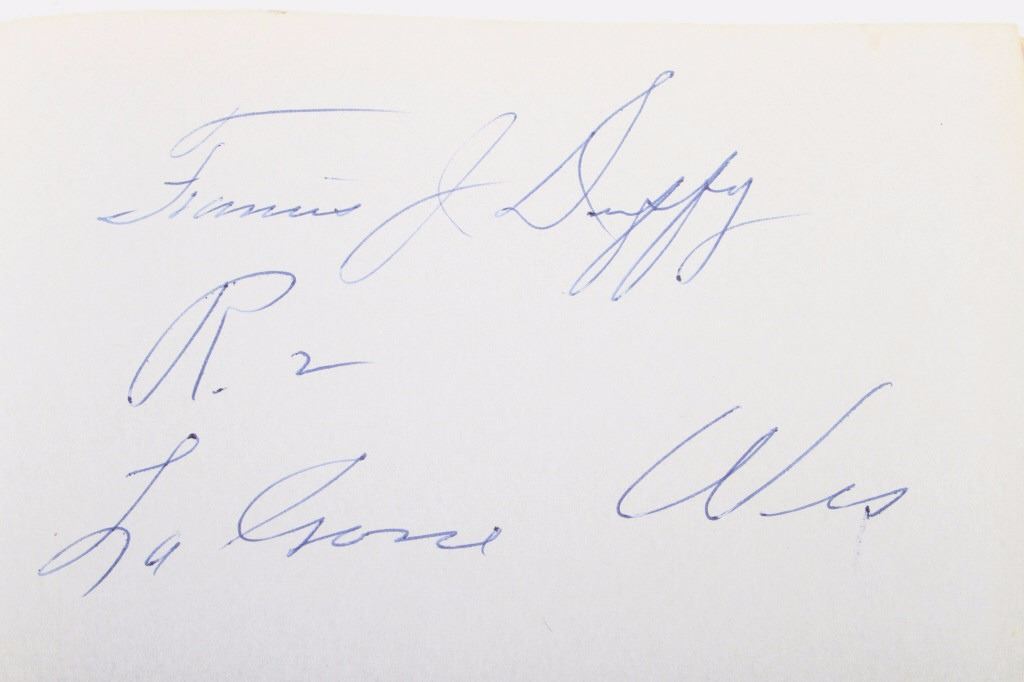 Francis J Duffy
R. 2
La Crosse Wis